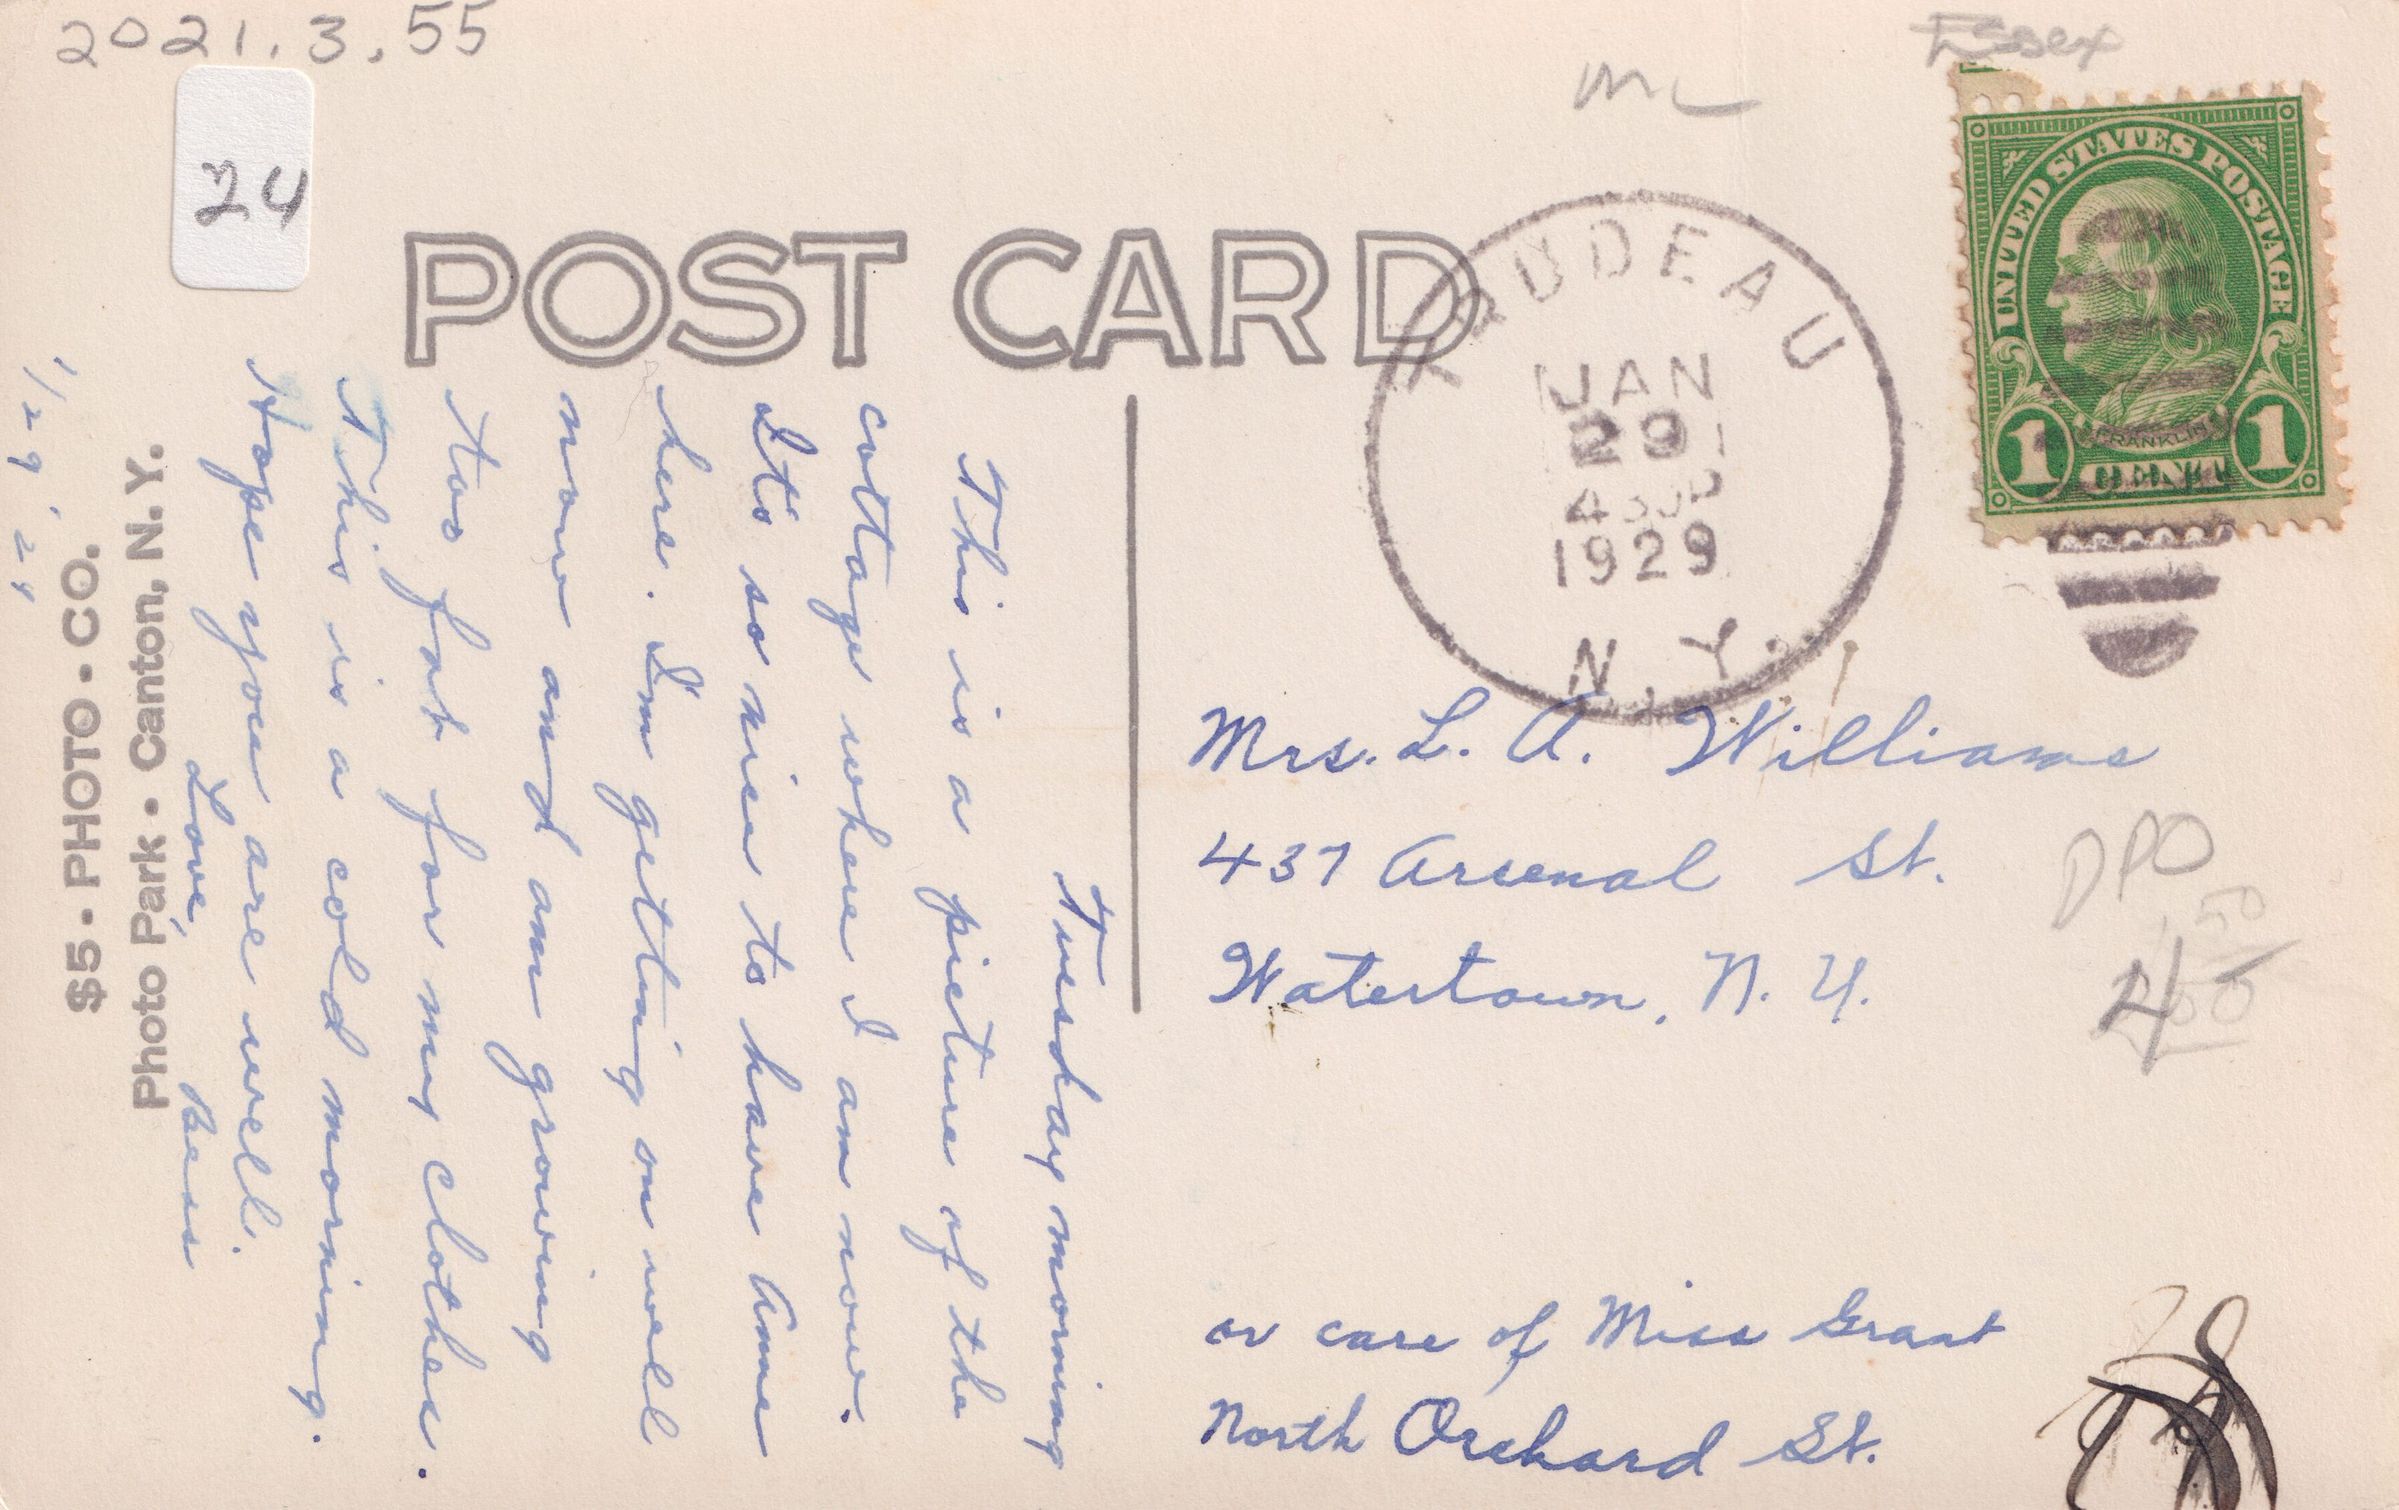 2021.3.55
Essex
24
POST CARD
TRUDEAU
JAN
29
430P
1929
N.Y.
UNITED STATES POSTAGE
FRANKLIN
1 CENT 1
Tuesday morning
This is a picture of the
cottage where I am now.
It's so nice to have Anne
here. I'm getting on well
now and am growing
too fat for my clothes.
This is a cold morning.
Hope you are well.
Love, Bess
$5 • PHOTO • CO.
Photo Park • Canton, N.Y.
Mrs. L. A. Williams
437 Arsenal St.
Watertown, N. Y.
DPO
or care of Miss Grant
North Orchard St.